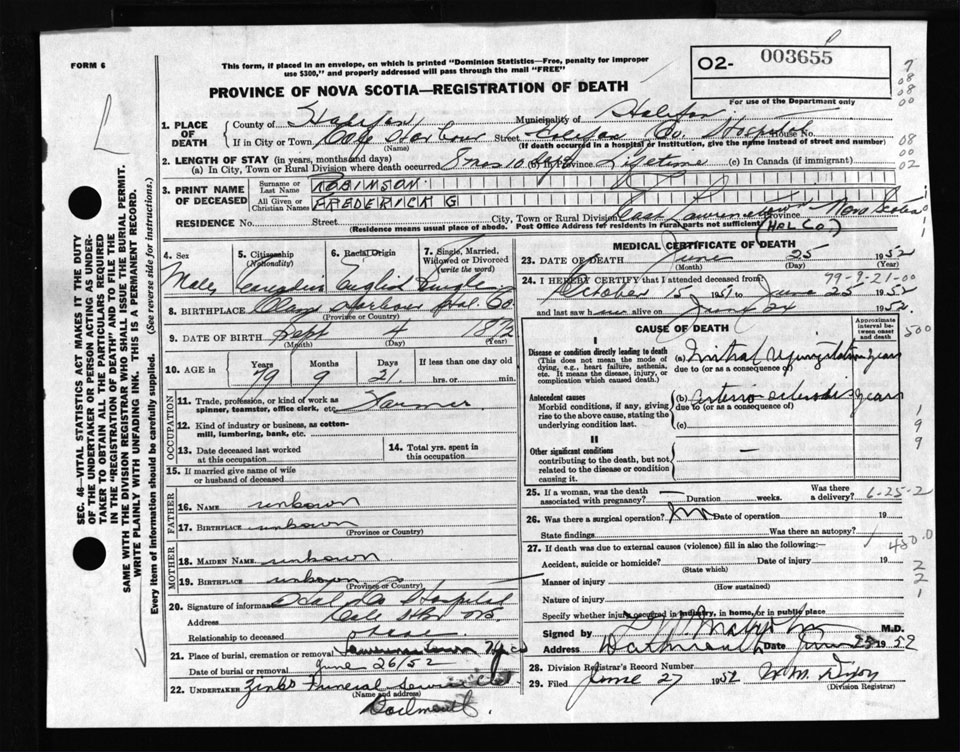 FORM 6
This form, if placed in an envelope, on which is printed "Dominion Statistics—Free, penalty for improper
use $300," and properly addressed will pass through the mail "FREE"
O2- 003655
For use of the Department only
PROVINCE OF NOVA SCOTIA—REGISTRATION OF DEATH
1. PLACE OF DEATH
County of Halifax Municipality of Halifax
If in City or Town Cole Harbour Street Halifax Co. Hospital House No.
(Name) (If death occurred in a hospital or institution, give the name instead of street and number)
2. LENGTH OF STAY (in years, months and days)
(a) In City, Town or Rural Division where death occurred 8 mos 10 days (b) In Province Lifetime (c) In Canada (if immigrant)
3. PRINT NAME OF DECEASED
Surname or Last Name ROBINSON
All Given or Christian Names FREDERICK G
RESIDENCE No. Street City, Town or Rural Division East Lawrencetown Province Nova Scotia
(Residence means usual place of abode. Post Office Address for residents in rural parts not sufficient) (HALCO)
4. Sex Male
5. Citizenship (Nationality)
6. Racial Origin English
7. Single, Married, Widowed or Divorced (write the word) Single
8. BIRTHPLACE Clam Harbour Hal. Co
(Province or Country)
9. DATE OF BIRTH Sept 4
(Month) (Day) (Year)
10. AGE in Years 79 Months 9 Days 21 If less than one day old
hrs. or min.
OCCUPATION
11. Trade, profession, or kind of work as
spinner, teamster, office clerk, etc. Farmer
12. Kind of industry or business, as cotton-
mill, lumbering, bank, etc.
13. Date deceased last worked
at this occupation
14. Total yrs. spent in
this occupation
15. If married give name of wife
or husband of deceased
FATHER
16. NAME unkown
17. BIRTHPLACE unkown
(Province or Country)
MOTHER
18. MAIDEN NAME unkown
19. BIRTHPLACE unkown
(Province or Country)
20. Signature of informant Hal Co Hospital
Address Cole Hbr
Relationship to deceased
21. Place of burial, cremation or removal Lawrencetown
Date of burial or removal June 26/52
22. UNDERTAKER Zinks Funeral Service
(Name and address)
MEDICAL CERTIFICATE OF DEATH
23. DATE OF DEATH June 25 1952
(Month) (Day)
24. I HEREBY CERTIFY that I attended deceased from 79-9-21-00
October 15 1951 to June 25 1952
and last saw him alive on June 24 1952
CAUSE OF DEATH
Approximate interval between onset and death
I
Disease or condition directly leading to death
(This does not mean the mode of
dying, e.g., heart failure, asthenia,
etc. It means the disease, injury, or
complication which caused death.)
(a) Mitral regurgitation years
due to (or as a consequence of)
Antecedent causes
Morbid conditions, if any, giving
rise to the above cause, stating the
underlying condition last.
(b) arterio sclerosis years
due to (or as a consequence of)
(c)
II
Other significant conditions
contributing to the death, but not
related to the disease or condition
causing it. —
25. If a woman, was the death
associated with pregnancy? — Duration weeks. Was there
a delivery? 6-25-2
26. Was there a surgical operation? no Date of operation 19
State findings Was there an autopsy?
27. If death was due to external causes (violence) fill in also the following:— 450.0
Accident, suicide or homicide? Date of injury 19
(State which)
Manner of injury
(How sustained)
Nature of injury
Specify whether injury occurred in industry, in home, or in public place
Signed by M.D.
Dartmouth Date June 25 1952
28. Division Registrar's Record Number
29. Filed June 27 1952 W.M. Dixon
(Division Registrar)
SEC. 46—VITAL STATISTICS ACT MAKES IT THE DUTY
OF THE UNDERTAKER OR PERSON ACTING AS UNDER-
TAKER TO OBTAIN ALL THE PARTICULARS REQUIRED
IN THE "REGISTRATION OF DEATH" AND TO FILE THE
SAME WITH THE DIVISION REGISTRAR WHO SHALL ISSUE THE BURIAL PERMIT.
WRITE PLAINLY WITH UNFADING INK. THIS IS A PERMANENT RECORD.
Every item of information should be carefully supplied. (See reverse side for instructions.)
7
08
08
00
08
00
02
500
1
9
9
2
2
1